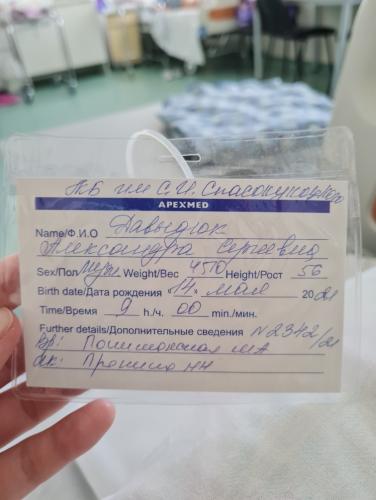 ГКБ им С.И. Спасокукоцкого
APEXMED
Name/Ф.И.О Давыдюк
Александра Сергеевна
Sex/Пол муж Weight/Вес 4510 Height/Рост 56
Birth date/Дата рождения 14. мая 2021
Time/Время 9 h./ч. 00 min./мин.
Further details/Дополнительные сведения N2342/21
вр:
ак: Пронина НН